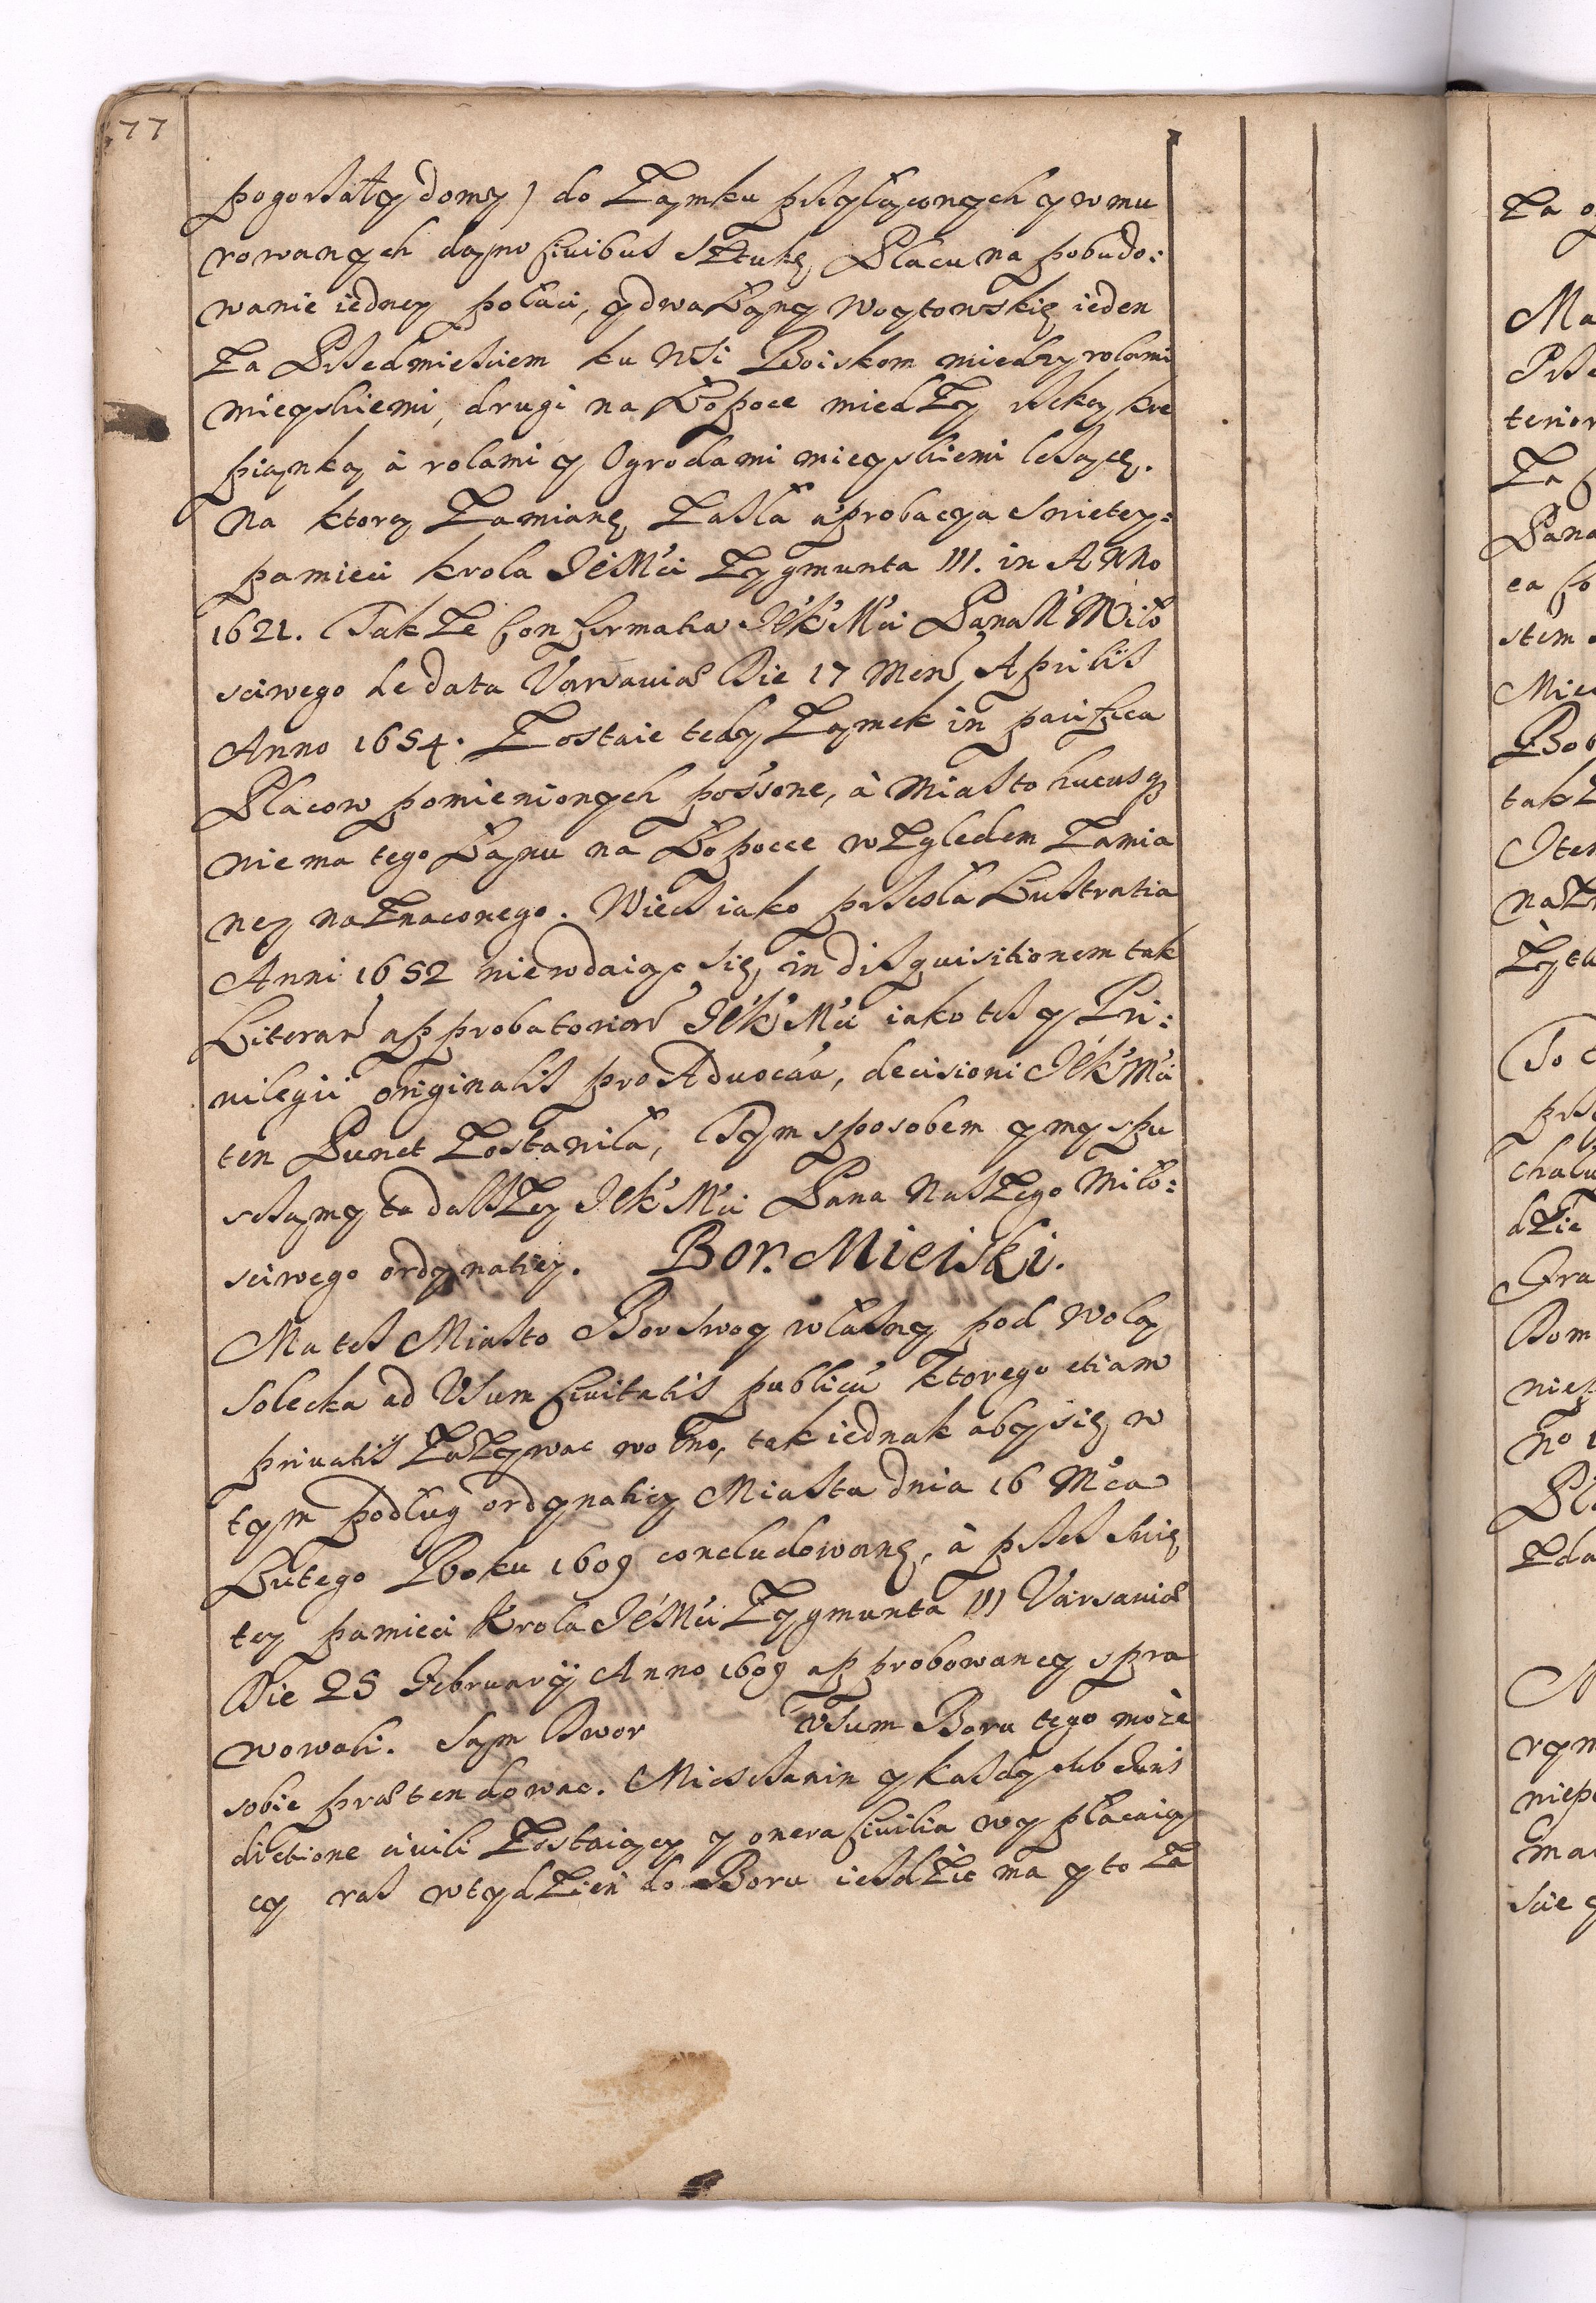 77
pogorzały domy) do Zamku przyłączonych y wmu
rowanych dano Civibus sztukę Placu na pobudo:
wanie iedney połaci, y dwa Łany Woytowskie ieden
Za Przedmiesciem ku Wsi Boiskom miedzy rolami
mieyskiemi, drugi na Łopoce miedzy rzeką kre
pianką à rolami y Ogrodami mieyskiemi leżące.
Na ktorą Zamianę Zaszła aprobacya Swietey:
pamieci krola JeºMᶜⁱ Zygmunta III. in Anno
1621. Takze Confirmatia JºKºMᶜⁱ Pana Nº Miło
sciwego de data Varsaviæ Die 17 Mens Aprilis
Anno 1654. Zostaie tedy Zamek in pacifica
Placow pomienionych possone, à Miasto hucusq
niema tego Łanu na Łopocce względem Zamia
ney naznaconego. Wiec iako przeszła Lustratia
Anni 1652 niewdaiąc się in disquisitionem tak
Literar approbatoriar JºKºMᶜⁱ iako tez y Pri:
vilegii originalis pro Advocaa, decisioni JºKºMᶜⁱ
ten Punct Zostawiła, Tym sposobem y my spu
szczamy to dalszey JºKºMᶜⁱ Pana Naszego Miło:
sciwego ordynatiey. Bor. Mieiski.
Ma tez Miasto Bor swoy własny pod Wolą
Solecka ad Usum Civitatis publicū ktorego etiam
privatis Zazywac wolno, tak iednak aby się w
tym podług ordynatiey Miasta dnia 16 Mᶜᵃ
Lutego Roku 1609 concludowane, à przez Swię
tey pamieci Krola JeºMᶜⁱ Zygmunta III Varsaviæ
Die 25 Februarij Anno 1609 approbowaney spra
wowali. Sam Dwor Usum Boru tego może
sobie prætendowac. Miesczanin y kazdy sub Iuris
dictione civili Zostaiący y onera Civilia wypłacaią
cy raz wtydzien do Boru iezdzic ma y to Za